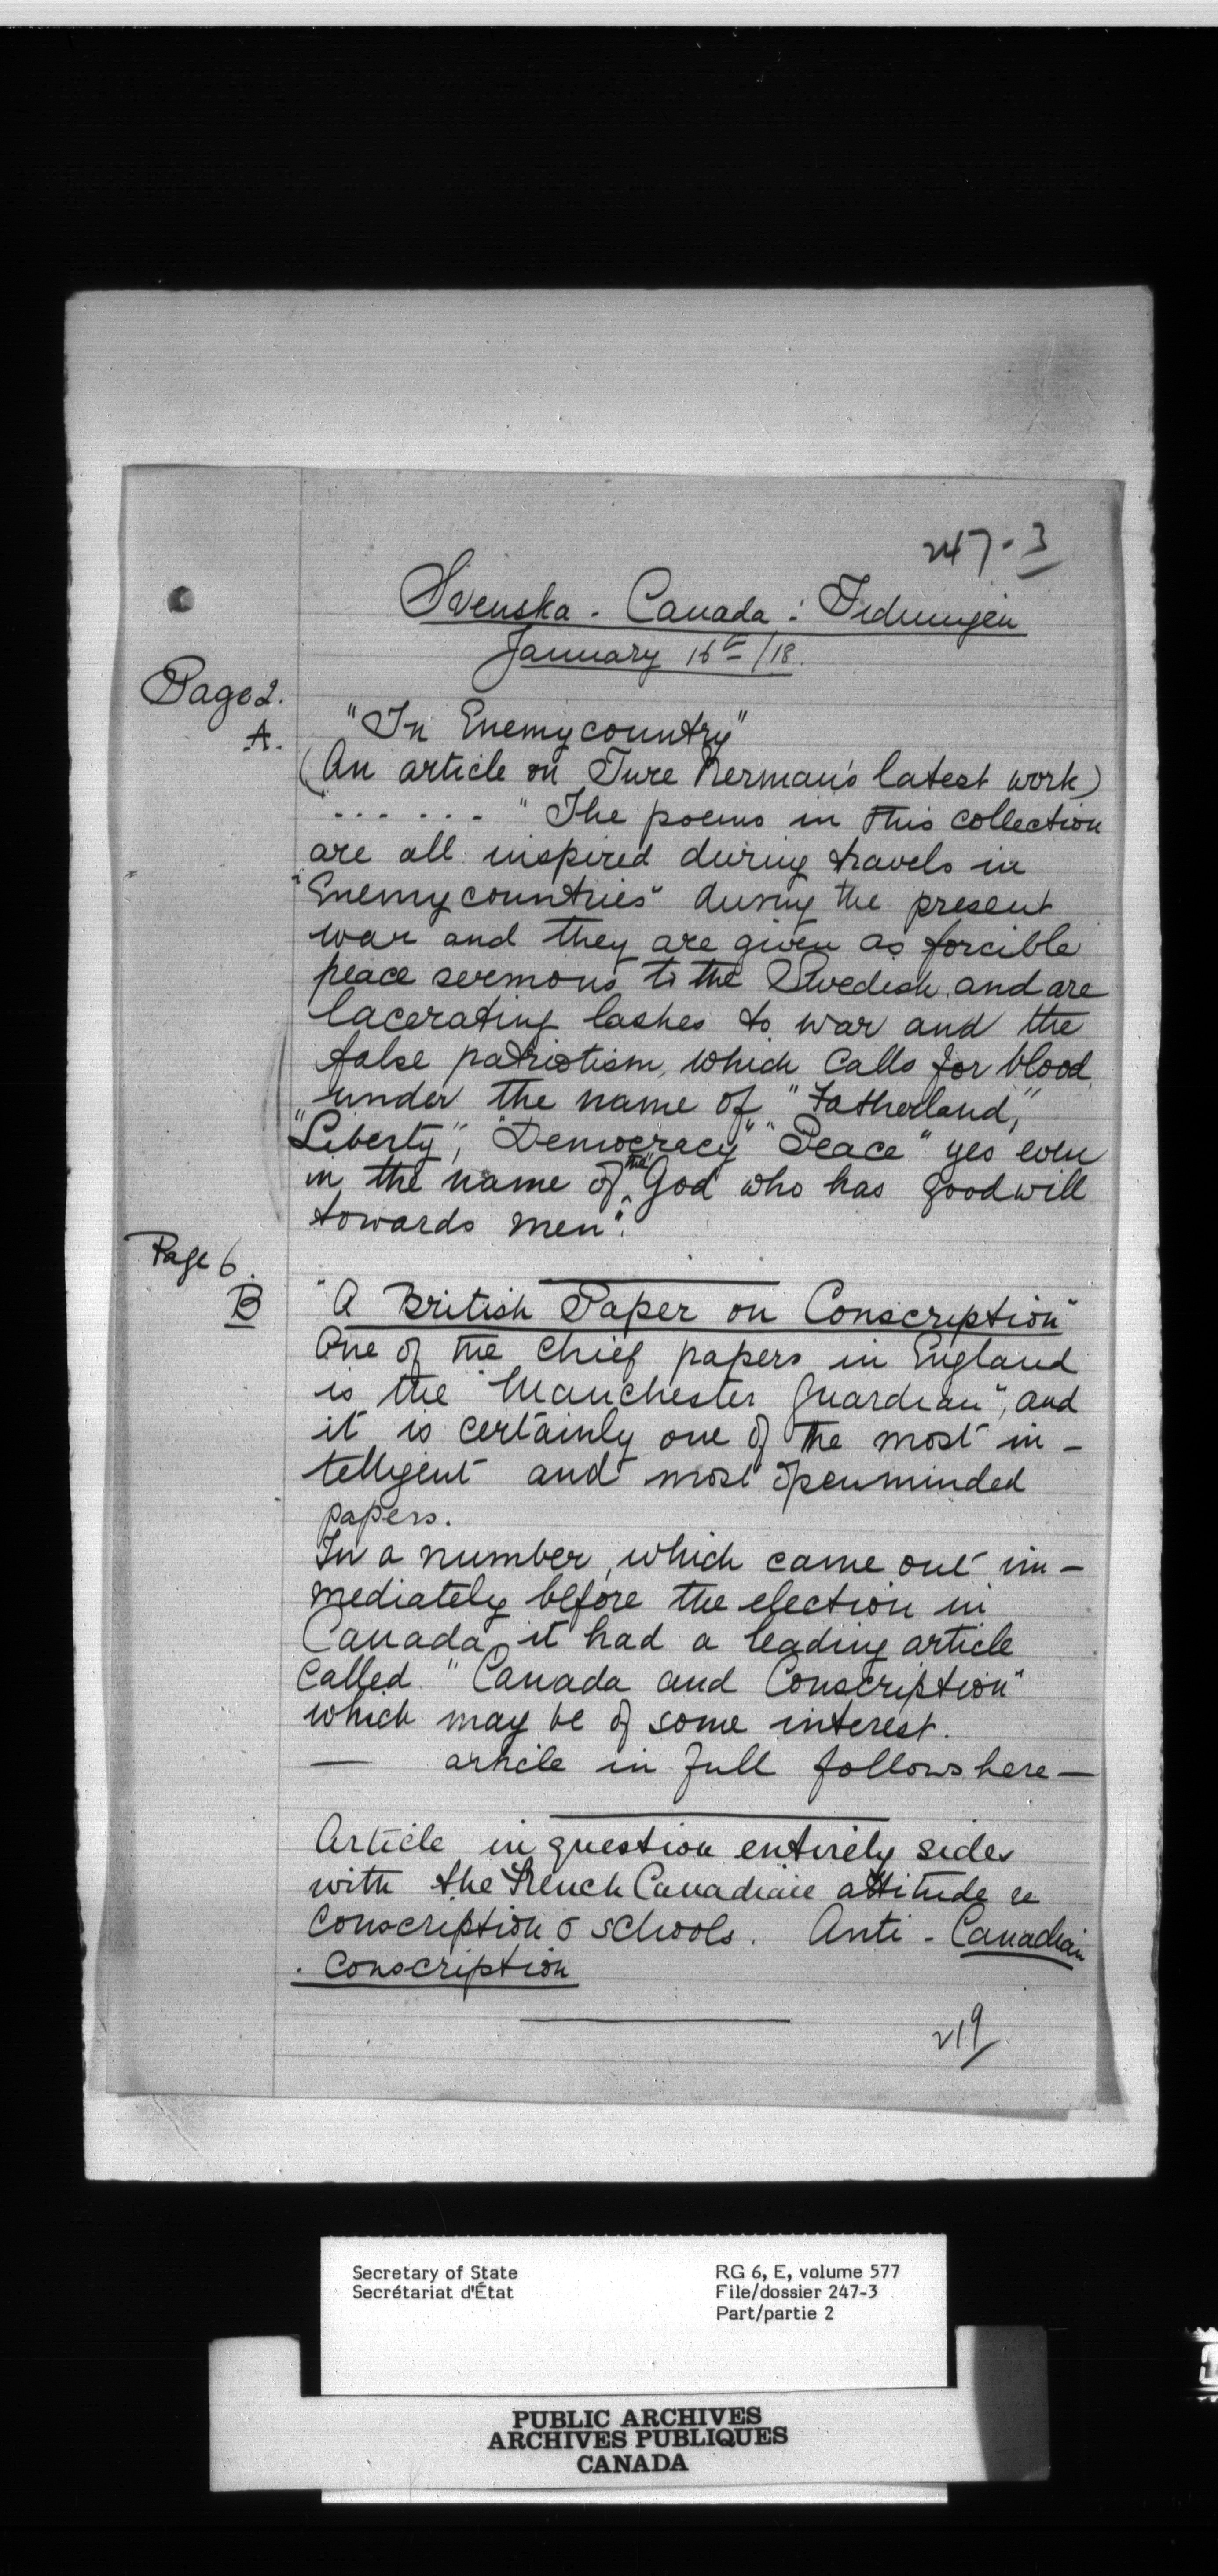 247-3
Svenska - Canada - Tidningen
January 16th/18.
Page 2.
A.
"In Enemycountry"
(An article on Ture Nerman's latest work)
. . . . . . "The poems in this collection
are all inspired during travels in
"Enemycountries" during the present
war and they are given as forcible
peace sermons to the Swedish and are
lacerating lashes to war and the
false patriotism, which calls for blood
under the name of "Fatherland",
"Liberty", "Democracy" "Peace" yes even
in the name of the "God who has goodwill
towards men".
Page 6.
B
"A British Paper on Conscription"
One of the chief papers in England
is the "Manchester Guardian", and
it is certainly one of the most in-
telligent and most openminded
papers.
In a number, which came out im-
mediately before the election in
Canada, it had a leading article
called "Canada and Conscription"
which may be of some interest.
— article in full follows here —
Article in question entirely sides
with the French Canadian attitude re
conscription & schools. Anti - Canadian
- conscription
219
Secretary of State
Secrétariat d'État
RG 6, E, volume 577
File/dossier 247-3
Part/partie 2
PUBLIC ARCHIVES
ARCHIVES PUBLIQUES
CANADA